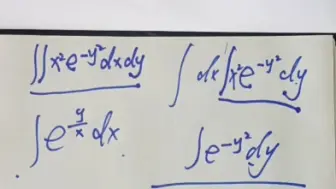 ∬x²e^{-y²}dxdy ∫dx∫x²e^{-y²}dy
∫e^{y/x}dx ∫e^{-y²}dy